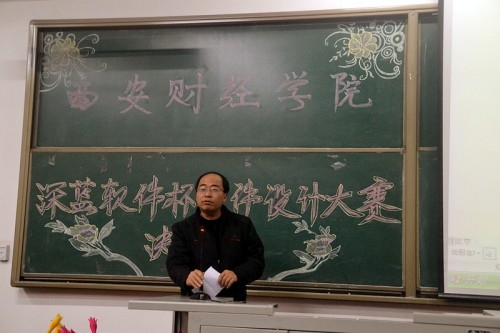 西安财经学院
深蓝软件杯 件设计大赛
决